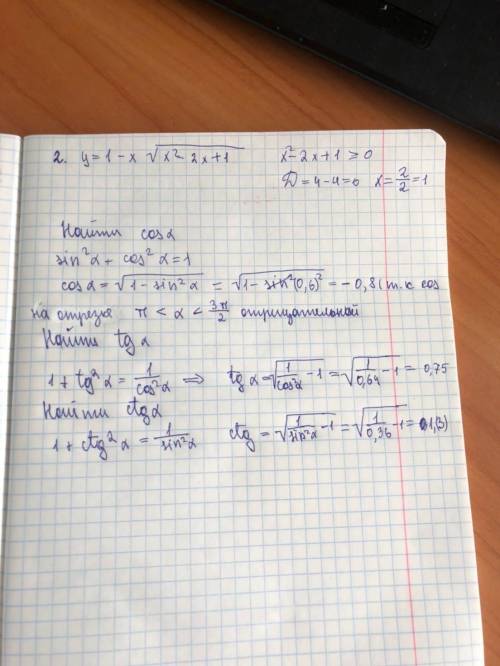 2. y = 1 - x √(x² - 2x + 1) x² - 2x + 1 ≥ 0
D = 4 - 4 = 0 x = 2/2 = 1
Найти cos α
sin²α + cos²α = 1
cos α = √(1 - sin²α) = √(1 - sin²(0,6)²) = - 0,8 (т.к cos
на отрезке π < α < 3π/2 отрицательной
Найти tg α
1 + tg²α = 1/cos²α ⇒ tg α = √(1/cos²α - 1) = √(1/0,64 - 1) = 0,75
Найти ctg α
1 + ctg²α = 1/sin²α ctg = √(1/sin²α - 1) = √(1/0,36 - 1) = 1,(3)